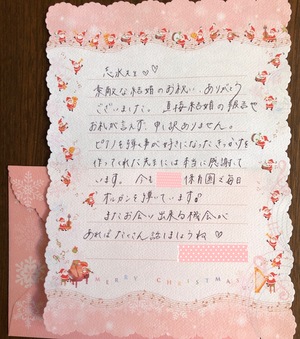 志水先生♡♡
素敵な結婚のお祝い、ありがとう
ございました。直接結婚の報告や
お礼が言えず、申し訳ありません。
ピアノを弾く事が好きになったきっかけを
作ってくれた先生には本当に感謝して
います。今も 保育園で毎日
オルガンを弾いています♪
またお会い出来る機会が
あればたくさん話しましょうね♡
MERRY CHRISTMAS